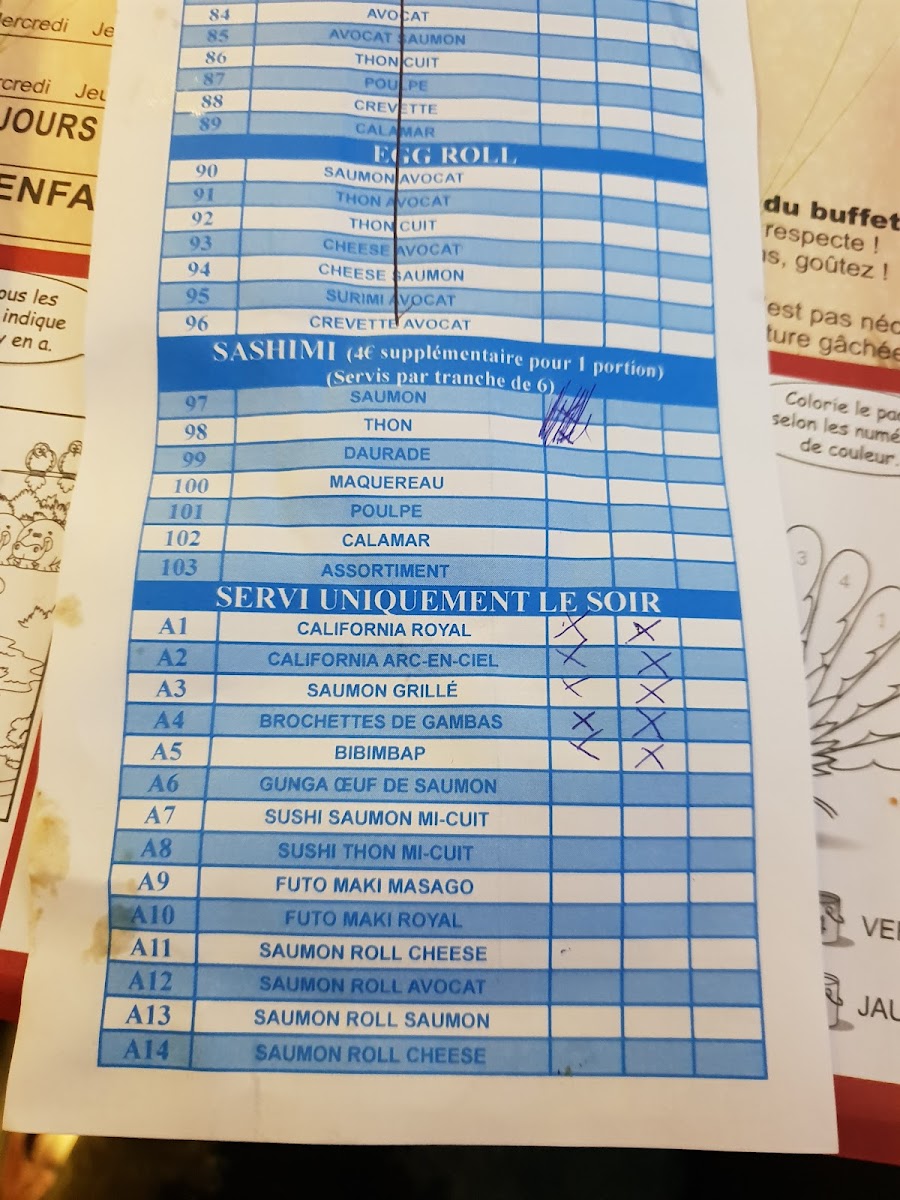 ercredi Je
credi Jeu
JOURS
ENFA
ous les
indique
y en a.
84 AVOCAT
85 AVOCAT SAUMON
86 THON CUIT
87 POULPE
88 CREVETTE
89 CALAMAR
EGG ROLL
90 SAUMON AVOCAT
91 THON AVOCAT
92 THON CUIT
93 CHEESE AVOCAT
94 CHEESE SAUMON
95 SURIMI AVOCAT
96 CREVETTE AVOCAT
SASHIMI (4€ supplémentaire pour 1 portion)
(Servis par tranche de 6)
97 SAUMON
98 THON
99 DAURADE
100 MAQUEREAU
101 POULPE
102 CALAMAR
103 ASSORTIMENT
SERVI UNIQUEMENT LE SOIR
A1 CALIFORNIA ROYAL X X
A2 CALIFORNIA ARC-EN-CIEL X X
A3 SAUMON GRILLÉ X X
A4 BROCHETTES DE GAMBAS X X
A5 BIBIMBAP X X
A6 GUNGA ŒUF DE SAUMON
A7 SUSHI SAUMON MI-CUIT
A8 SUSHI THON MI-CUIT
A9 FUTO MAKI MASAGO
A10 FUTO MAKI ROYAL
A11 SAUMON ROLL CHEESE
A12 SAUMON ROLL AVOCAT
A13 SAUMON ROLL SAUMON
A14 SAUMON ROLL CHEESE
du buffet
respecte !
s, goûtez !
est pas néc
ture gâchée
Colorie le pa
selon les numé
de couleur.
3
4
1
VER
JAU